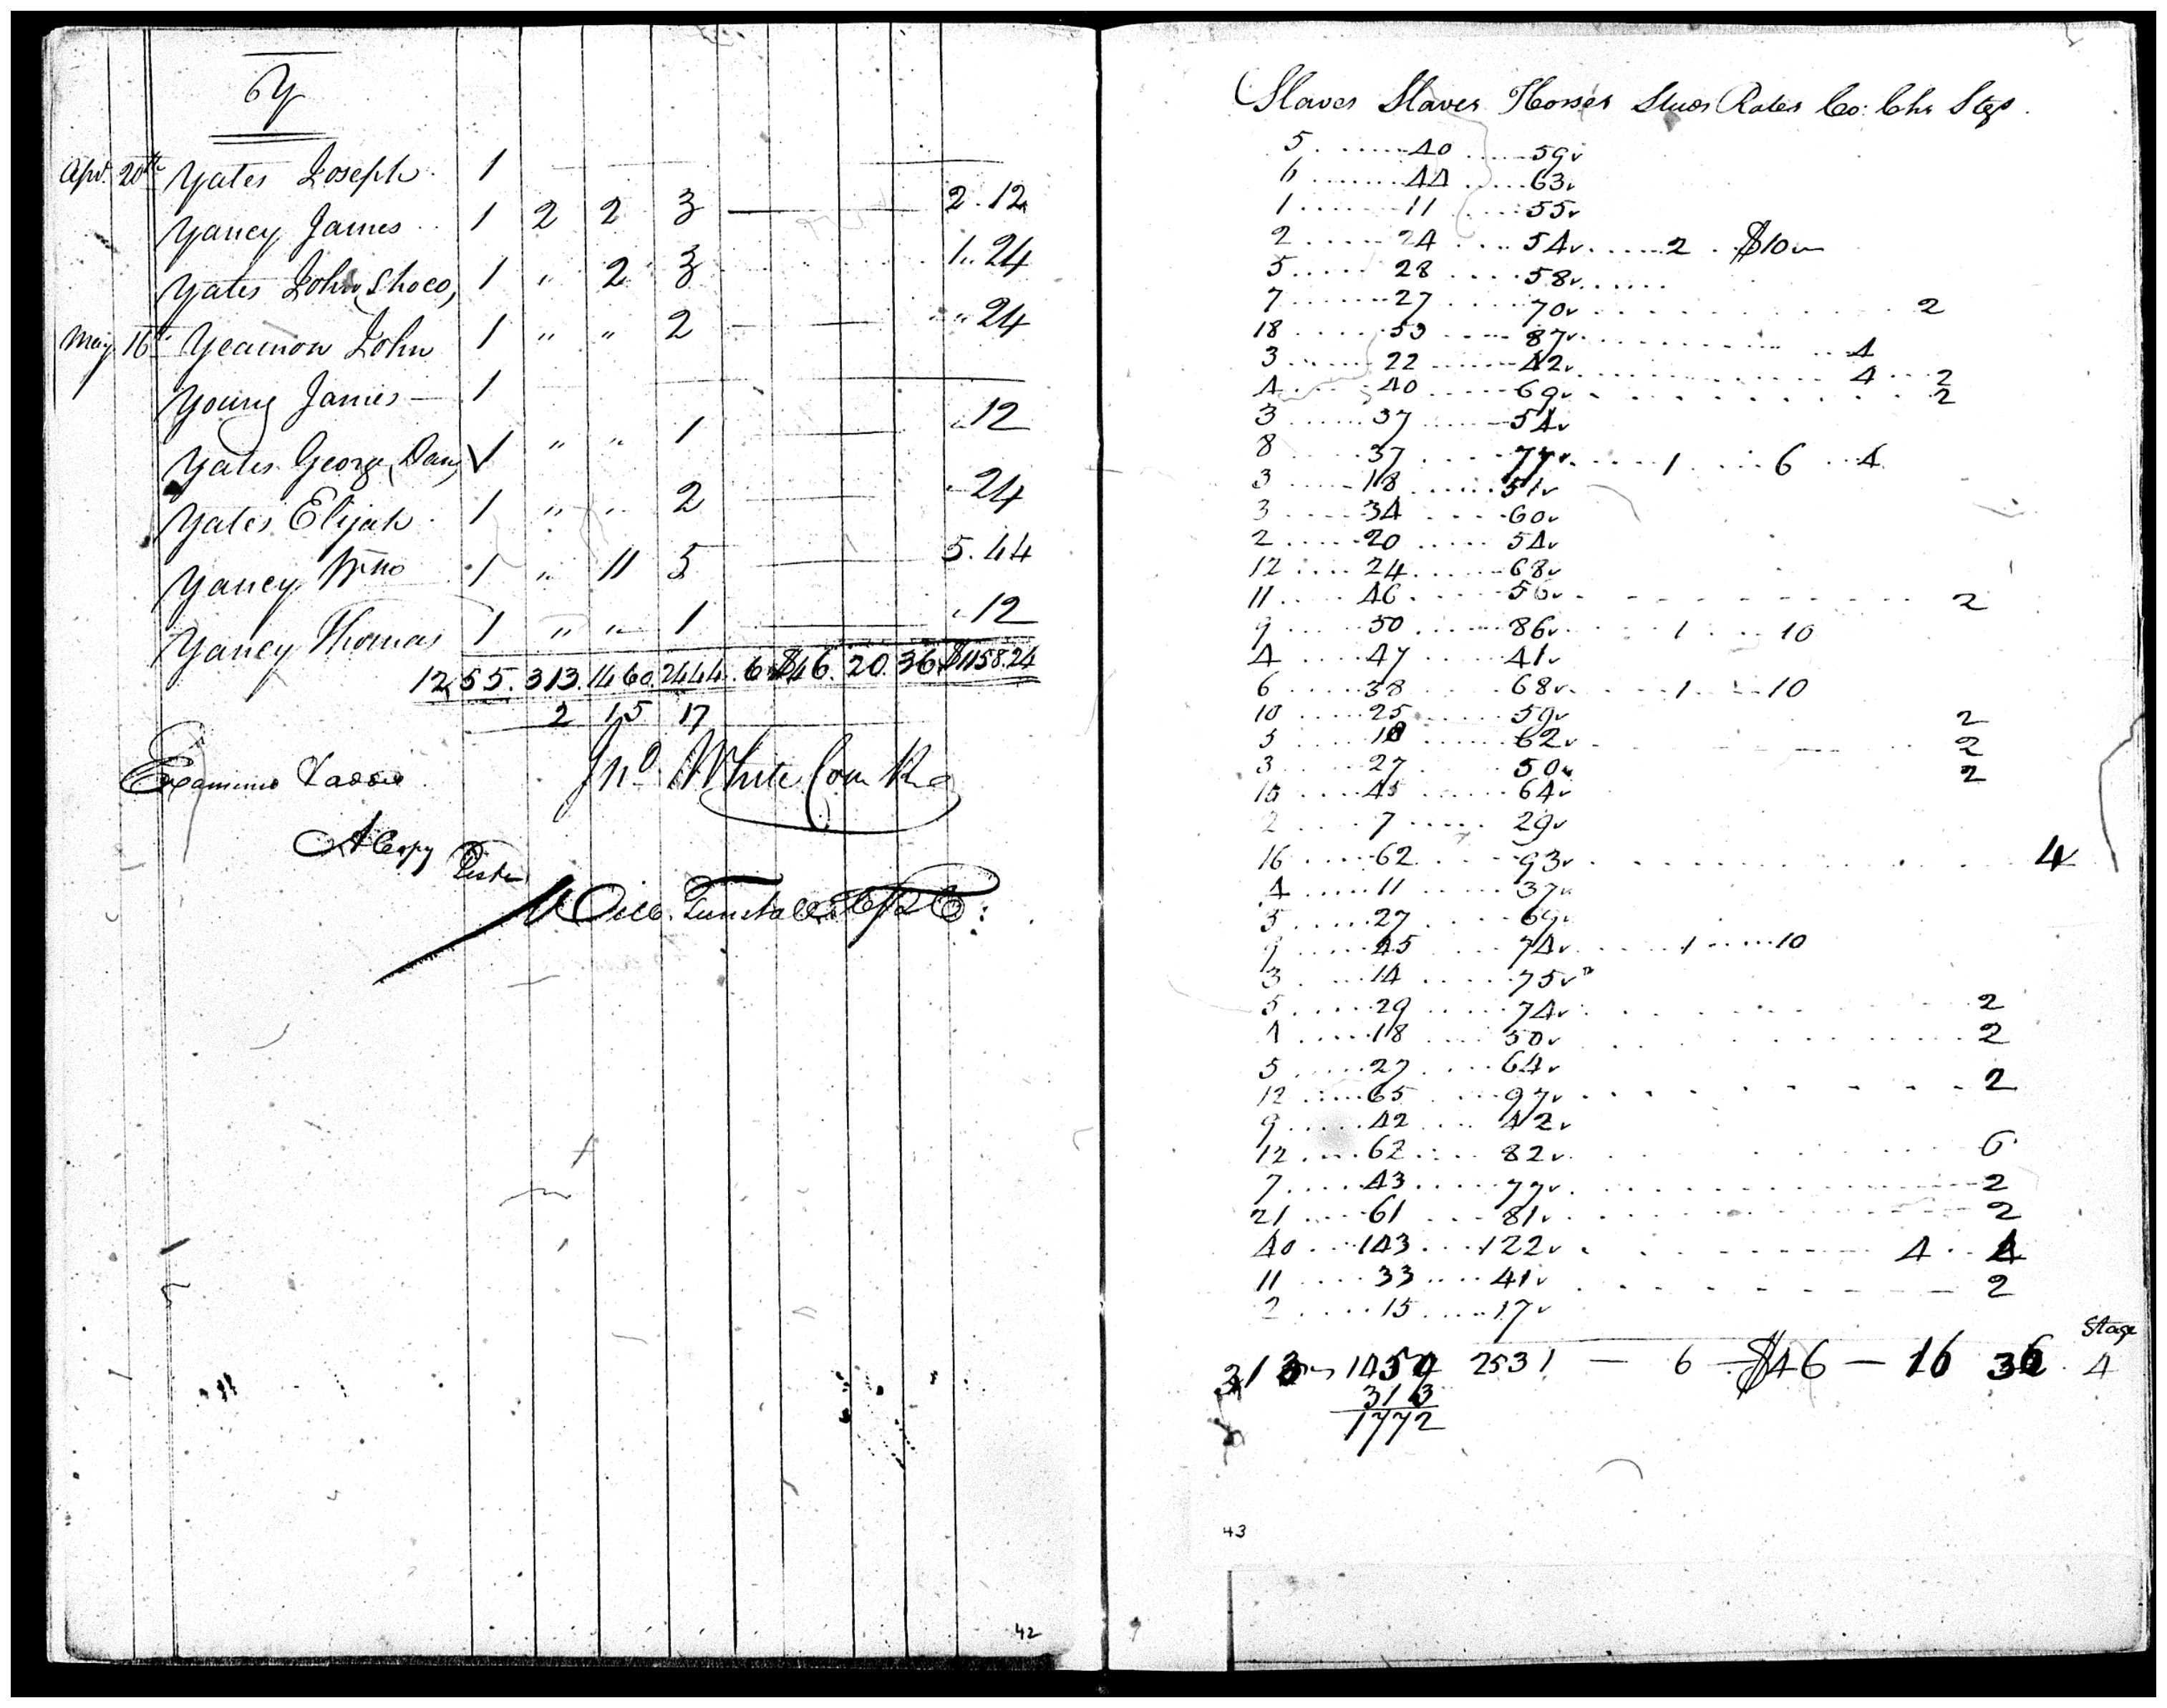 Y
Apr. 20th Yates Joseph 1
Yancy James 1 2 2 3 2.12
Yates John (Shoco) 1 " 2 3 1.24
May 16th Yeamon John 1 " " 2 " 24
Young James 1
Yates George (Dan) 1 " " 1 " 12
Yates Elijah 1 " " 2 " 24
Yancy Wm 1 " 11 5 5.44
Yancy Thomas 1 " " 1 " 12
1255. 313. 1460. 2444. 6 $46. 20. 36. $1158.24
2 15 17
Examined
Jno White Com Re
A Copy
Teste
Will Tunstall
42
Slaves Slaves Horses Studs Rates Co: Chs Stgs.
5 40 59
6 44 63
1 11 55
2 24 54 2 $10
5 28 58
7 27 70 2
18 53 87 4
3 22 42 4 2
4 40 69 2
3 37 54
8 37 77 1 6 4
3 18 51
3 34 60
2 20 54
12 24 68
11 46 56 2
9 50 86 1 10
4 47 41
6 38 68 1 10
10 25 59 2
5 18 62 2
3 27 50 2
15 45 64
2 7 29
16 62 93 4
4 11 37
5 27 69
9 45 74 1 10
3 14 75
5 29 74 2
4 18 50 2
5 27 64
12 65 97 2
9 42 42
12 62 82 6
7 43 77 2
21 61 81 2
40 143 122 4 4
11 33 41 2
2 15 17
Stage
313 1459 2531 — 6 — $46 — 16 36 4
313
1772
43